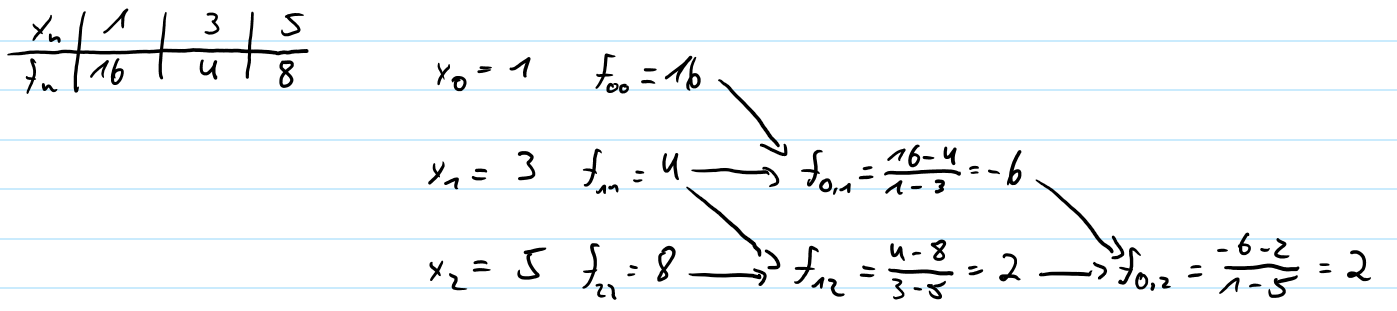 xₙ | 1 | 3 | 5
fₙ | 16 | 4 | 8
x₀ = 1 f₀₀ = 16
x₁ = 3 f₁₁ = 4 → f₀,₁ = (16-4)/(1-3) = -6
x₂ = 5 f₂₂ = 8 → f₁₂ = (4-8)/(3-5) = 2 → f₀,₂ = (-6-2)/(1-5) = 2